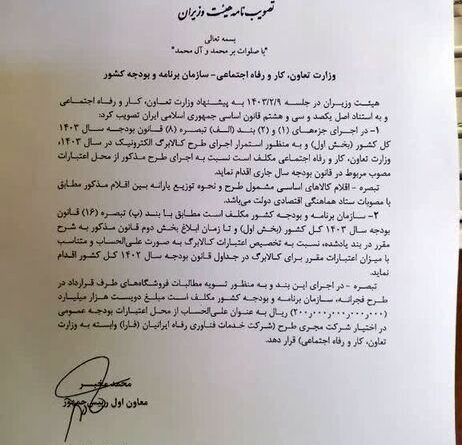 تصویب نامه هیئت وزیران
بسمه تعالی
"با صلوات بر محمد و آل محمد"
وزارت تعاون، کار و رفاه اجتماعی - سازمان برنامه و بودجه کشور
هیئت وزیران در جلسه ۱۴۰۳/۲/۹ به پیشنهاد وزارت تعاون، کار و رفاه اجتماعی
و به استناد اصل یکصد و سی و هشتم قانون اساسی جمهوری اسلامی ایران تصویب کرد:
۱- در اجرای جزءهای (۱) و (۲) بند (الف) تبصره (۸) قانون بودجه سال ۱۴۰۳
کل کشور (بخش اول) و به منظور استمرار اجرای طرح کالابرگ الکترونیک در سال ۱۴۰۳،
وزارت تعاون، کار و رفاه اجتماعی مکلف است نسبت به اجرای طرح مذکور از محل اعتبارات
مصوب مربوط در قانون بودجه سال جاری اقدام نماید.
تبصره - اقلام کالاهای اساسی مشمول طرح و نحوه توزیع یارانه بین اقلام مذکور مطابق
با مصوبات ستاد هماهنگی اقتصادی دولت می‌باشد.
۲- سازمان برنامه و بودجه کشور مکلف است مطابق با بند (پ) تبصره (۱۶) قانون
بودجه سال ۱۴۰۳ کل کشور (بخش اول) و تا زمان ابلاغ بخش دوم قانون مذکور به شرح
مقرر در بند یادشده، نسبت به تخصیص اعتبارات کالابرگ به صورت علی‌الحساب و متناسب
با میزان اعتبارات مقرر برای کالابرگ در جداول قانون بودجه سال ۱۴۰۲ کل کشور اقدام
نماید.
تبصره - در اجرای این بند و به منظور تسویه مطالبات فروشگاه‌های طرف قرارداد در
طرح فجرانه، سازمان برنامه و بودجه کشور مکلف است مبلغ دویست هزار میلیارد
(۲۰۰٫۰۰۰٫۰۰۰٫۰۰۰٫۰۰۰) ریال به عنوان علی‌الحساب از محل اعتبارات بودجه عمومی
در اختیار شرکت مجری طرح (شرکت خدمات فناوری رفاه ایرانیان (فارا) وابسته به وزارت
تعاون، کار و رفاه اجتماعی) قرار دهد.
محمد مخبر
معاون اول رییس جمهور